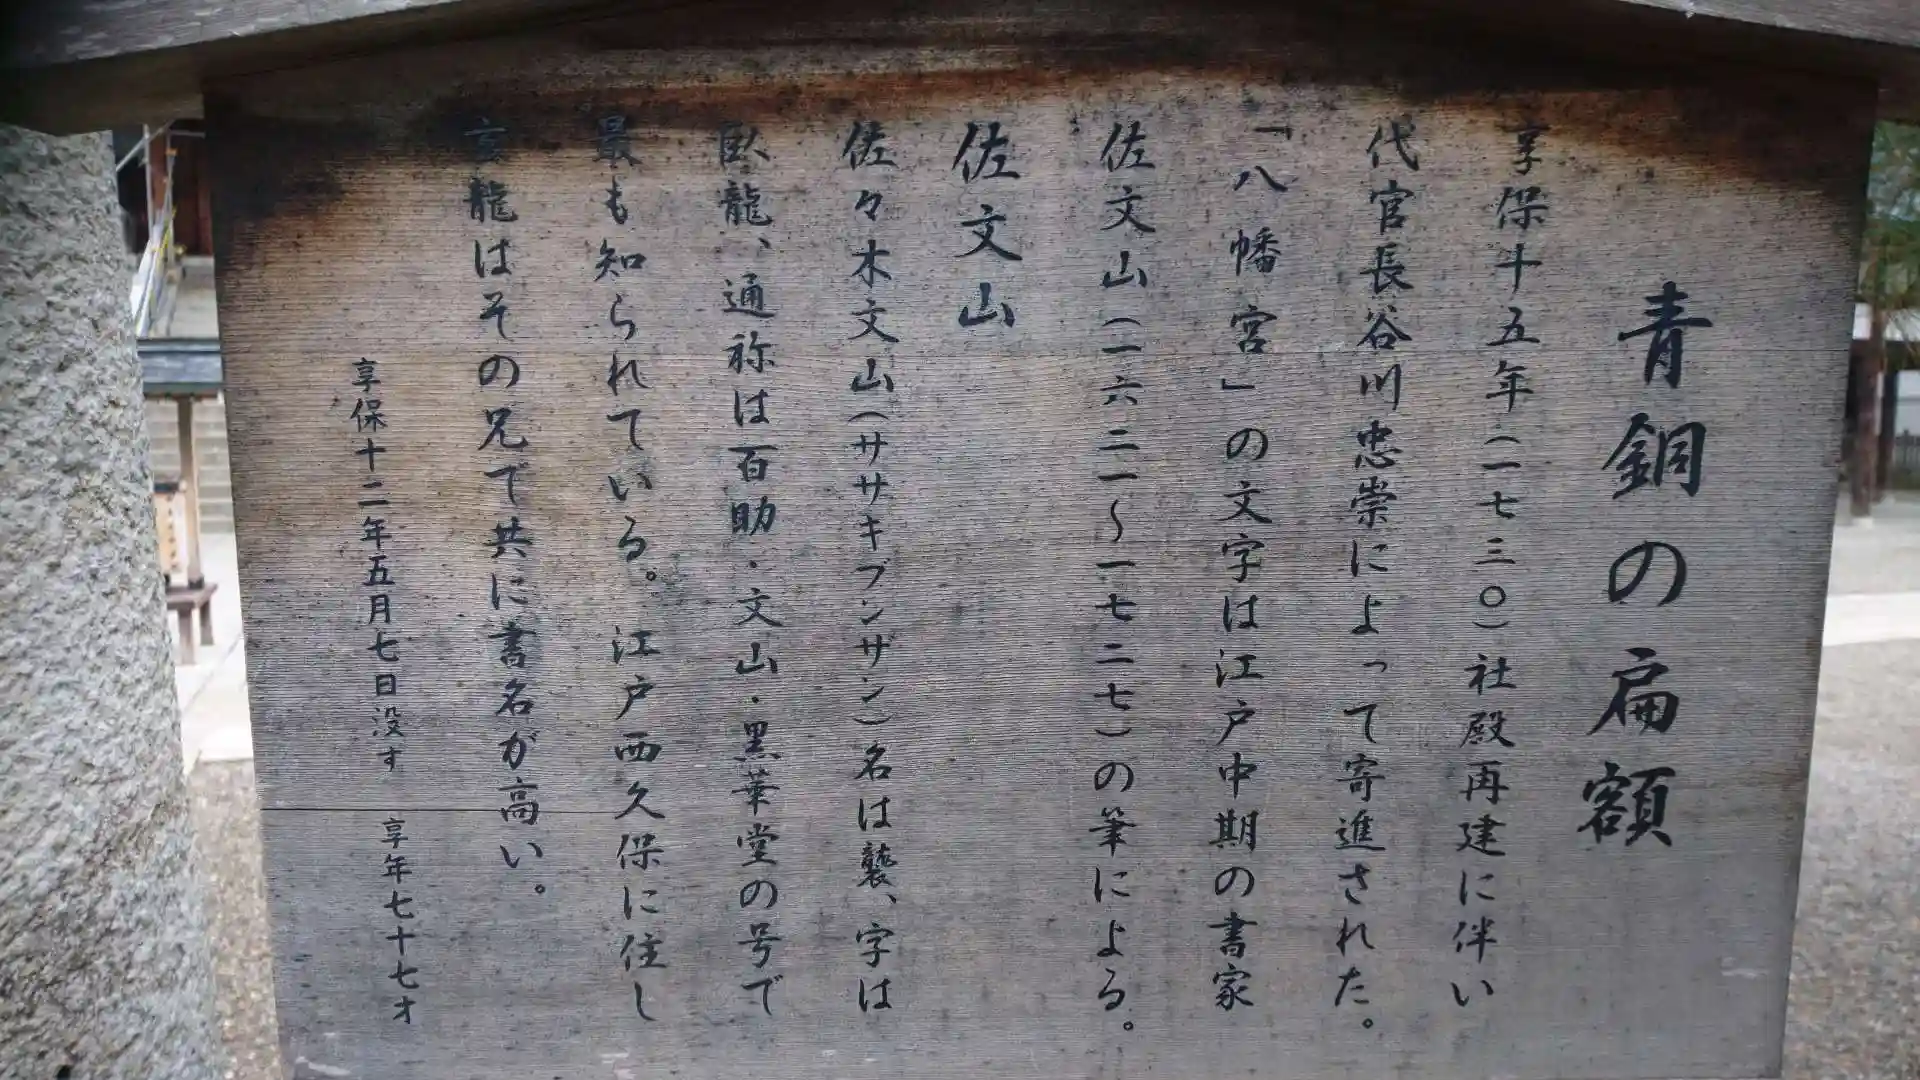 青銅の扁額
享保十五年（一七三〇）社殿再建に伴い
代官長谷川忠崇によって寄進された。
「八幡宮」の文字は江戸中期の書家
佐文山（一六二一〜一七二七）の筆による。
佐文山
佐々木文山（ササキブンザン）名は襲、字は
臥龍、通称は百助・文山・墨華堂の号で
最も知られている。江戸西久保に住し
玄龍はその兄で共に書名が高い。
享保十二年五月七日没す　享年七十七才